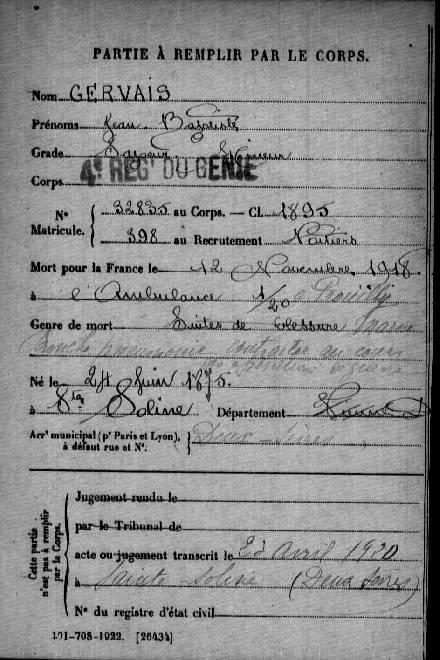 PARTIE À REMPLIR PAR LE CORPS.
Nom GERVAIS
Prénoms Jean-Baptiste
Grade Sapeur Mineur
Corps 4e REGt DU GENIE
N° Matricule. 32835 au Corps. — Cl. 1895
398 au Recrutement Poitiers
Mort pour la France le 12 Novembre 1918
à l'Ambulance 1/20
Genre de mort Suites de blessure
Broncho pneumonie contractée au cours
Né le 24 Juin 1875.
à Ste Soline Département
Arrt municipal (pr Paris et Lyon), à défaut rue et N°. Deux-Sèvres
Cette partie n'est pas à remplir par le Corps.
Jugement rendu le
par le Tribunal de
acte ou jugement transcrit le 23 Avril 1920
à Sainte Soline (Deux Sèvres)
N° du registre d'état civil
101-708-1922. [26434]